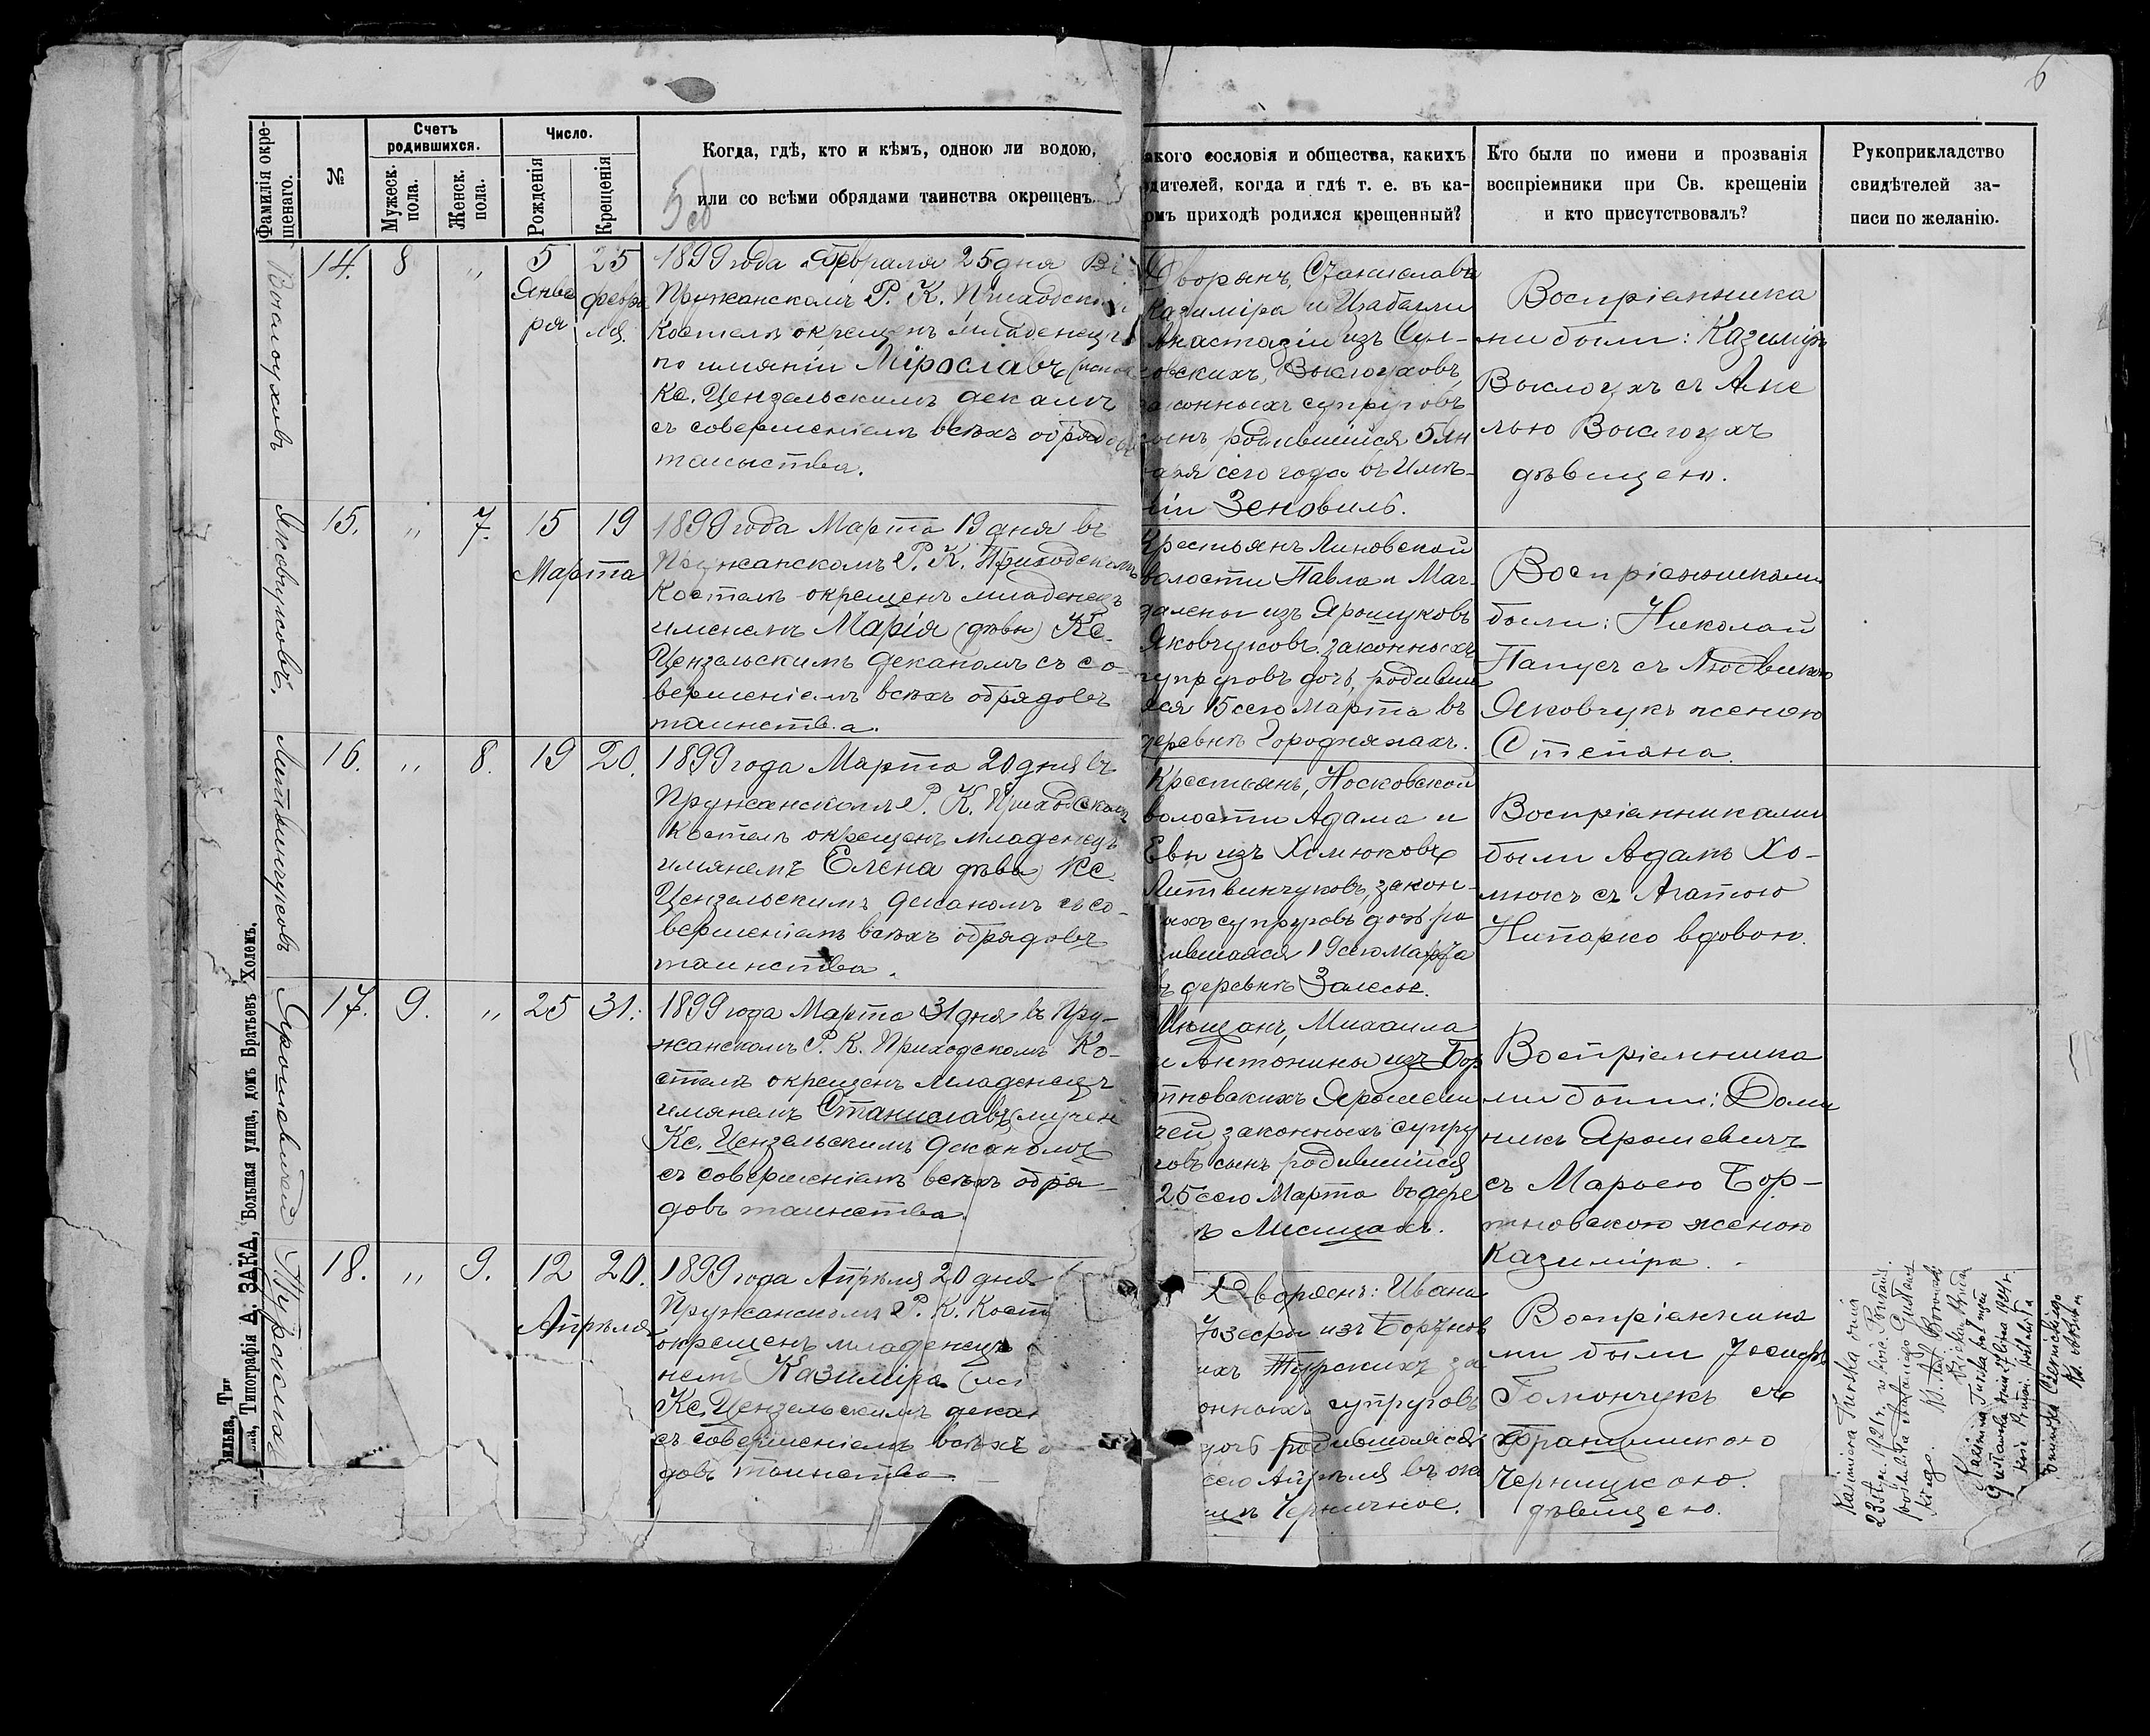 6
Фамилія окре-
щенаго.
№
Счетъ
родившихся.
Мужеск.
пола.
Женск.
пола.
Число.
Рожденія
Крещенія
Когда, гдѣ, кто и кѣмъ, одною ли водою,
или со всѣми обрядами таинства окрещенъ.
акого сословія и общества, какихъ
дителей, когда и гдѣ т. е. въ ка-
омъ приходѣ родился крещенный?
Кто были по имени и прозванія
воспріемники при Св. крещеніи
и кто присутствовалъ?
Рукоприкладство
свидѣтелей за-
писи по желанію.
14.
8
"
5
Янва
ря
25
февра
ля.
1899 года Февраля 25 дня
Пружанскомъ Р. К. Приходском
Костелѣ окрещенъ младенецъ
по имяніи Мірославъ
Кс. Цензельскимъ деканъ
съ совершеніемъ всѣхъ обрядов
таиства.
Дворянъ, Станислава
Казиміра и Изабелли
Анастазіи изъ Сул-
овскихъ, Воклоуховъ
законныхъ супруговъ
сынъ родившійся 5 Ян
варя сего года въ Имѣ-
ніи Зеновиль.
Воспріемника
ми были: Казиміръ
Воклоухъ съ Ане
лью Воклоухъ
дѣвицею.
Яковчуковъ.
15.
"
7.
15
19
Марта
1899 года Марта 19 дня въ
Пружанскомъ Р. К. Приходскомъ
Костелѣ окрещенъ младенецъ
именемъ Марія (дѣва) Кс.
Цензельскимъ деканомъ съ со-
вершеніемъ всѣхъ обрядовъ
таинства.
Крестьянъ Линовской
волости Павла и Маг-
далены изъ Ярошуковъ
Яковчуковъ законныхъ
супруговъ дочь, родивша
яся 15 сего Марта въ
деревнѣ Городнянахъ.
Воспріемниками
были: Николай
Папусъ съ Людвикою
Яковчукъ женою
Степана.
Литвинчуковъ
16.
"
8.
19
20.
1899 года Марта 20 дня въ
Пружанскомъ Р. К. Приходскомъ
Костелѣ окрещенъ младенецъ
имянемъ Елена дѣва) Кс.
Цензельскимъ деканомъ съ со-
вершеніемъ всѣхъ обрядовъ
таинства.
Крестьянъ, Носковской
волости Адама и
Евы изъ Хомюковъ
Литвинчуковъ, закон-
ныхъ супруговъ дочь ро
дившаяся 19 сего Марта
въ деревнѣ Залесье.
Воспріемниками
были Адамъ Хо-
мюкъ съ Агатою
Нипарко вдовою.
Ярошевичей
17.
9.
"
25
31.
1899 года Марта 31 дня въ Пру-
жанскомъ Р. К. Приходскомъ Ко-
стелѣ окрещенъ младенецъ
имянемъ Станиславъ (мучен
Кс. Цензельскимъ деканомъ
съ совершеніемъ всѣхъ обря-
довъ таинства.
Мѣщанъ, Михаила
и Антонины изъ Бор
тновскихъ Ярошеви
чей законныхъ супру
говъ сынъ родившійся
25 сего Марта въ дере
ѣ Лисицахъ.
Воспріемника
ми были: Доми
никъ Ярошевичъ
съ Марьею Бор-
тновскою женою
Казиміра.
Турскихъ
18.
"
9.
12
20.
Апрѣля
1899 года Апрѣля 20 дня
Пружанскомъ Р. К. Кост
окрещенъ младенецъ
немъ Казиміра
Кс. Цензельскимъ декан
съ совершеніемъ всѣхъ о
довъ таинства
Дворянъ: Ивана
Юзефы изъ Бортнов
ихъ Турскихъ за
онныхъ супруговъ
дочь родившаяся
сего Апрѣля въ
Черничное.
Воспріемника
ми были Іосифъ
Гомончукъ съ
Францишкою
Черницкою.
дѣвицею.
Kazimiera Turska dnia
23 1921 r.
Вильна, Тип
на, Типографія А. ЗАКА, Большая улица, домъ Братьевъ Холемъ.